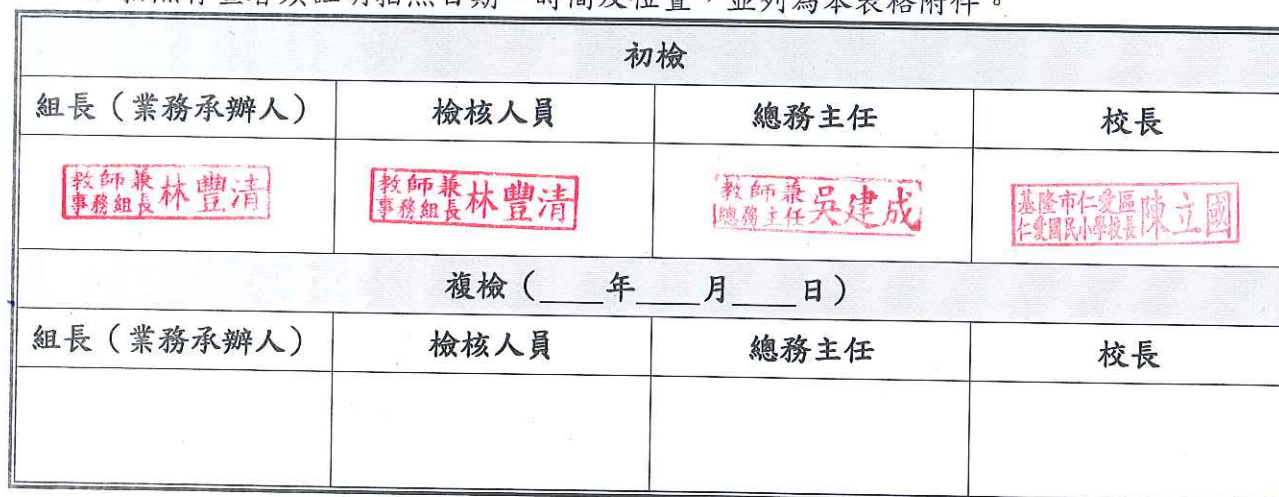 時間及位置，並列為本表格附件。
初檢
組長（業務承辦人） 檢核人員 總務主任 校長
教師兼事務組長林豐清 教師兼事務組長林豐清 教師兼總務主任吳建成 基隆市仁愛區仁愛國民小學校長陳立國
複檢（____年____月____日）
組長（業務承辦人） 檢核人員 總務主任 校長